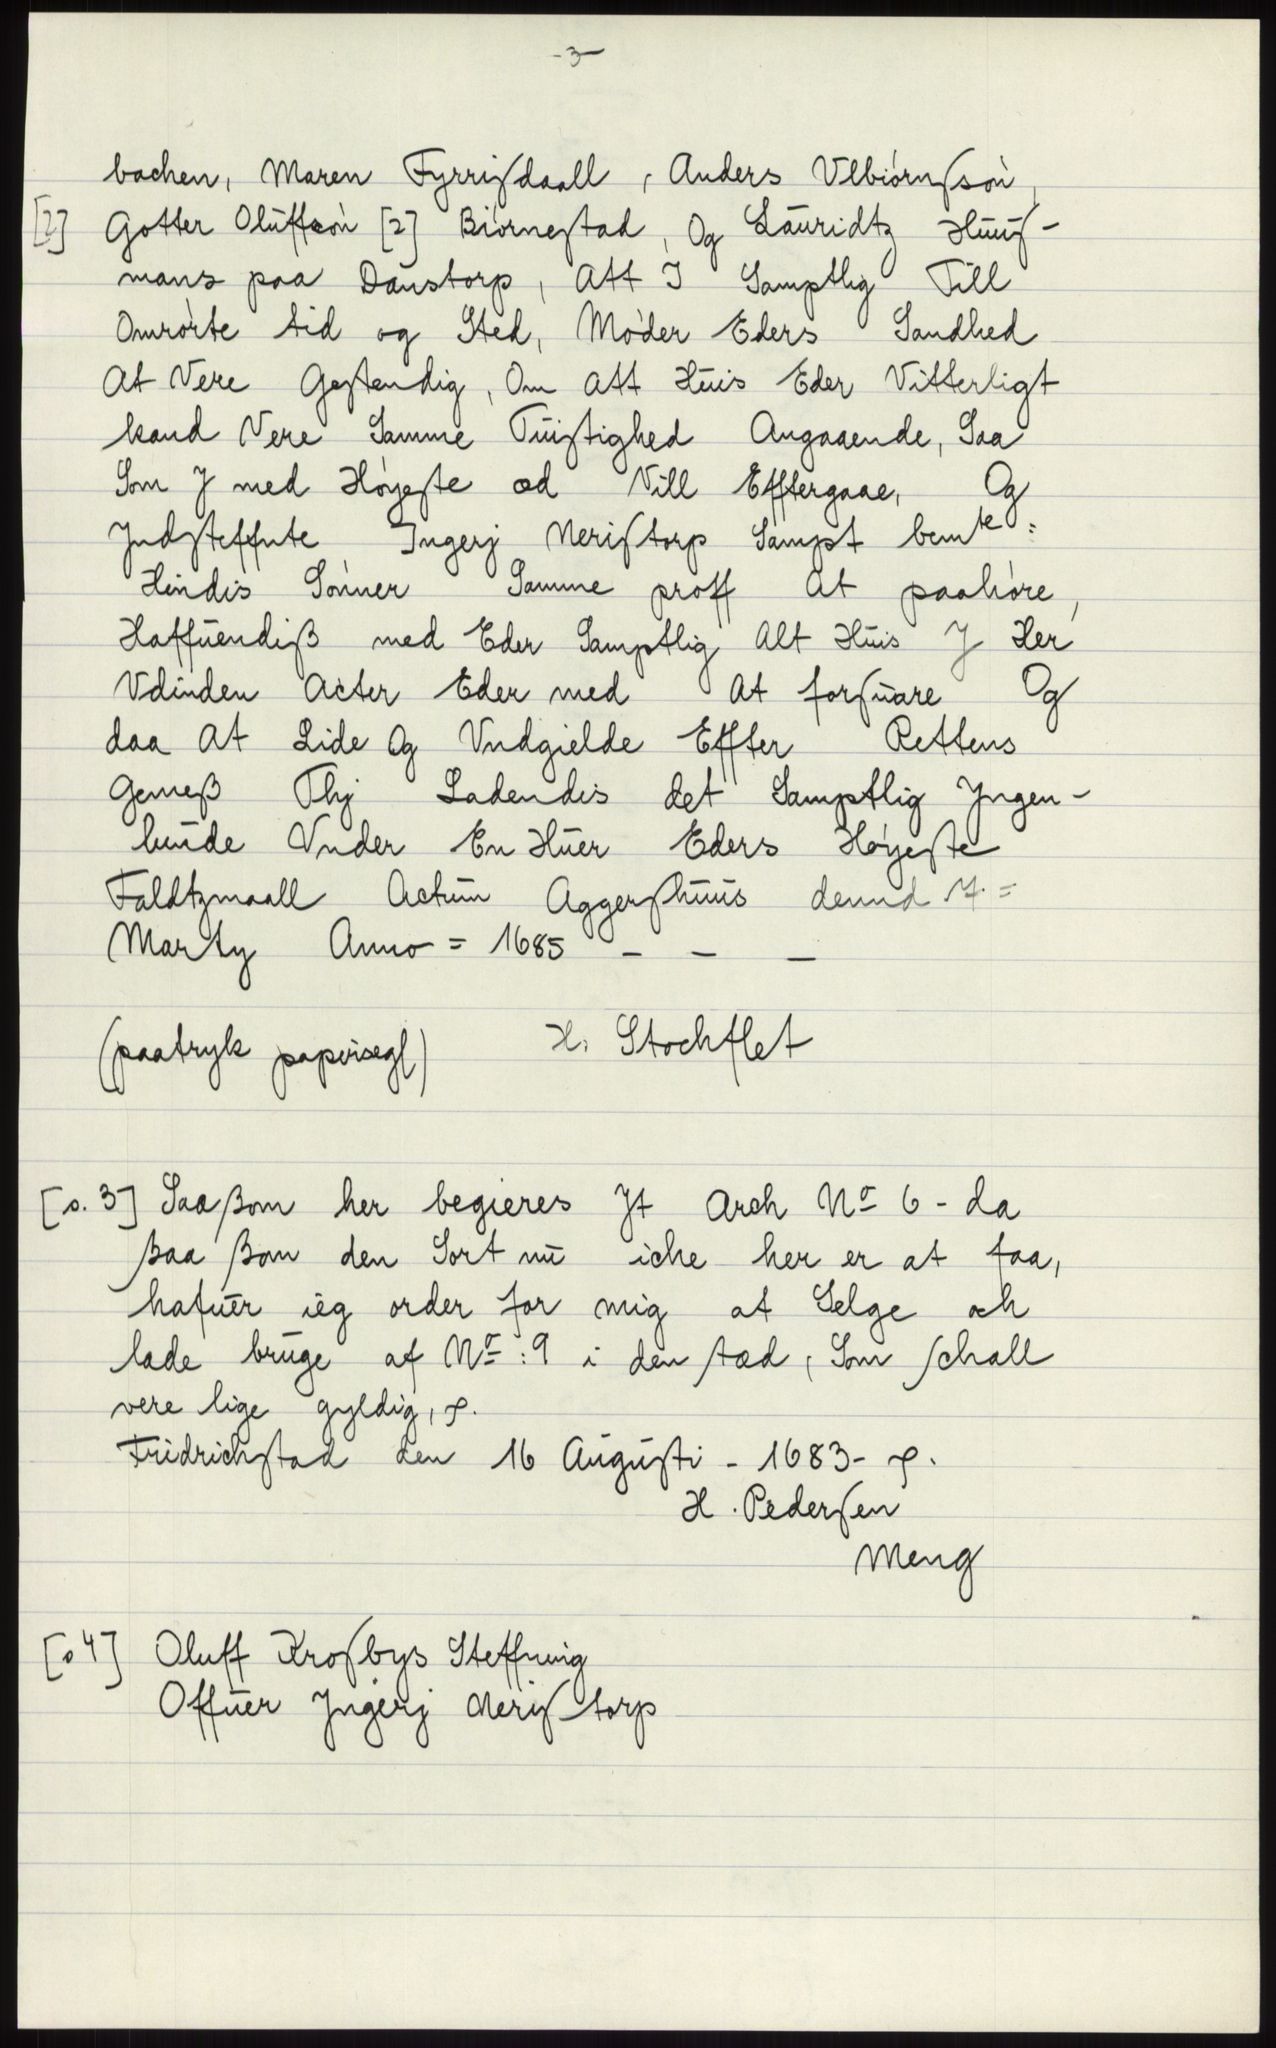 -3-
bachen, Maren Fyrrisdaall, Anders Vlbiørnssøn,
[2] Gotter Olüffsøn [2] Biørnestad, Og Laüridtz Huus-
mans paa Danstorp, Att I Samptlig Till
Omrørte tid og Sted, Møder Eders Sandhed
At Vere Gestendig, Om Att Hüis Eder Vitterligt
kand Vere Samme Tüistighed Angaaende, Saa
Som J med Høyeste æd Vill Efftergaae, Og
Jndsteffnte Ingerj Neristorp Sampt bemte:
Hindis Sønner Samme proff At paahøre,
Haffüendiß med Eder Samptlig Alt Hüis J Her
Vdinden Acter Eder med At forsüare Og
daa At Lide Og Vndgielde Effter Rettens
Gemeß Thj Ladendis det Samptlig Yngen-
lünde Vnder En Hüer Eders Høyeste
Faldtzmaall Actüm Aggershüüs dennd 17 =
Marty Anno = 1685 - - -
(paatryk papirsegl) H. Stochflet
[s. 3] Saa ßom her begieres Jt Arch No 6 - da
ßaa ßom den Sort nü iche her er at faa,
hafüer ieg order for mig at Selge och
lade brüge af No : 9 i den stæd, Som schall
vere lige gyldig,
Fridrichstad den 16 Aügüsti - 1683 -
H. Pedersen
Meng
[s 4] Oluff Krosbys Steffning
Offüer Jngerj Neristorp